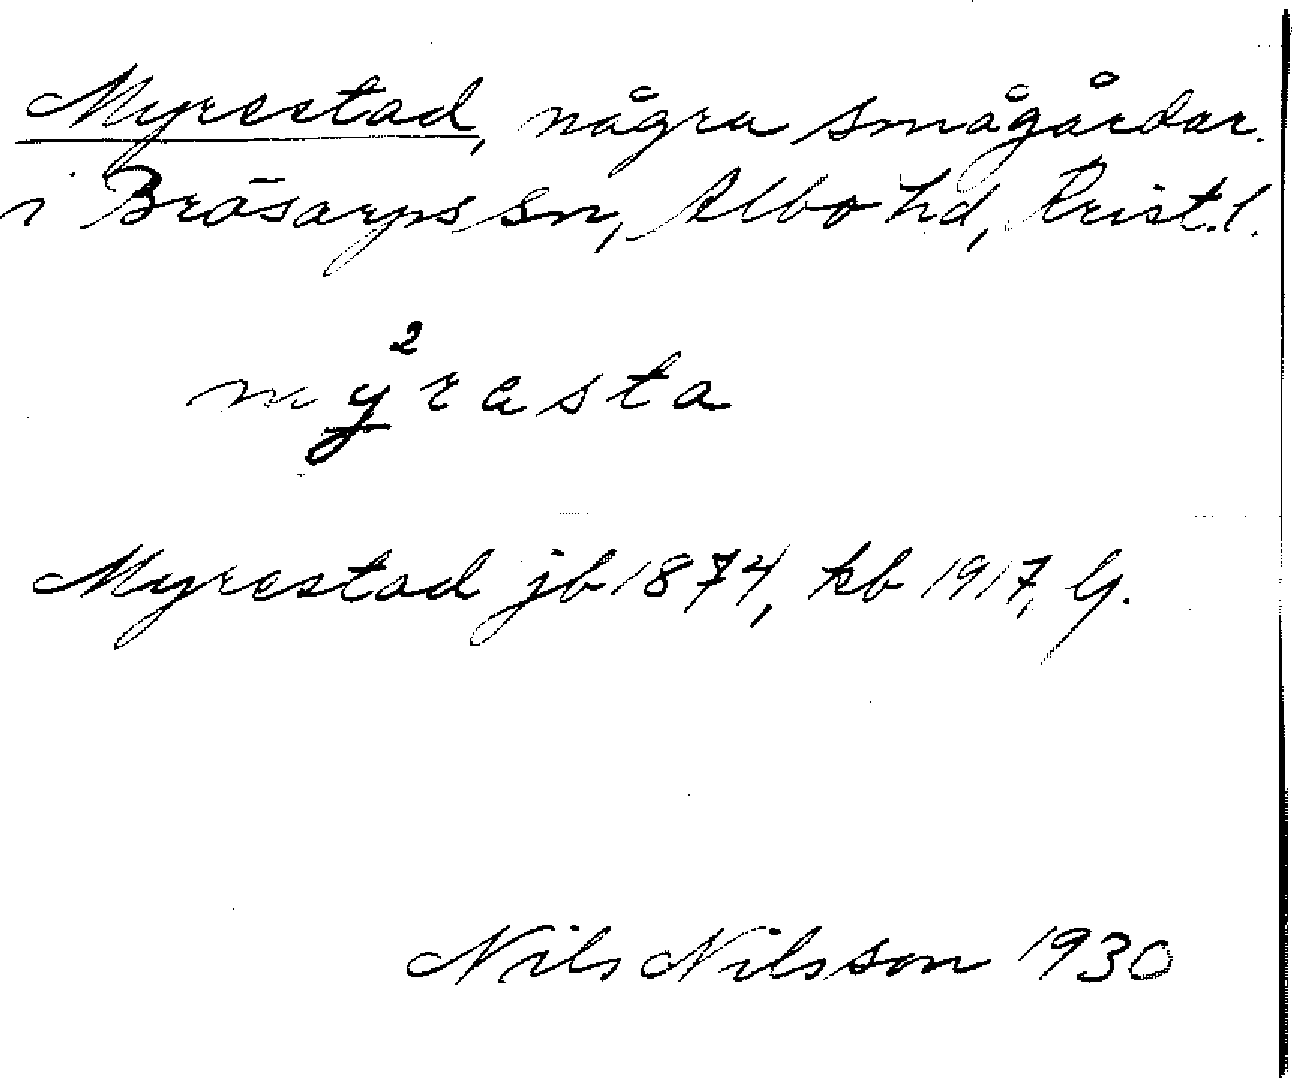 Myrestad, några smågårdar.
i Bräsarps sn, Albo hd, Krist. l.
2
myrasta
Myrestad jb 1874, kb 1917, G.
Nils Nilsson 1930